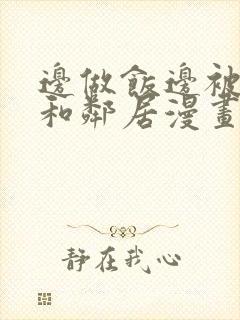 邊做飯邊被
和鄰居漫畫
靜在我心